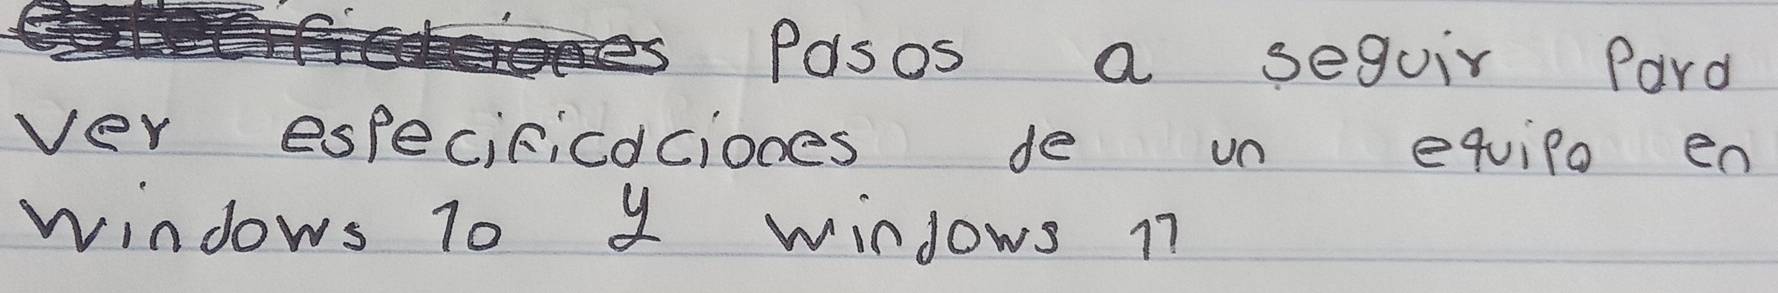 Pasos a seguir para
ver especificaciones de un equipo en
windows 10 y windows 11